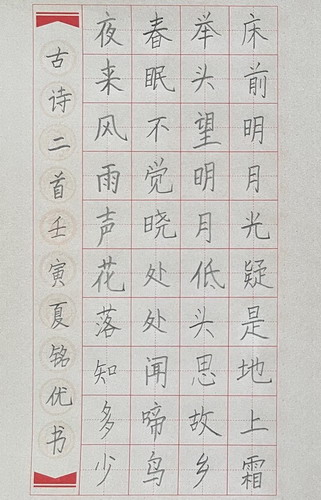 床前明月光疑是地上霜
举头望明月低头思故乡
春眠不觉晓处处闻啼鸟
夜来风雨声花落知多少
古诗二首壬寅夏铭优书